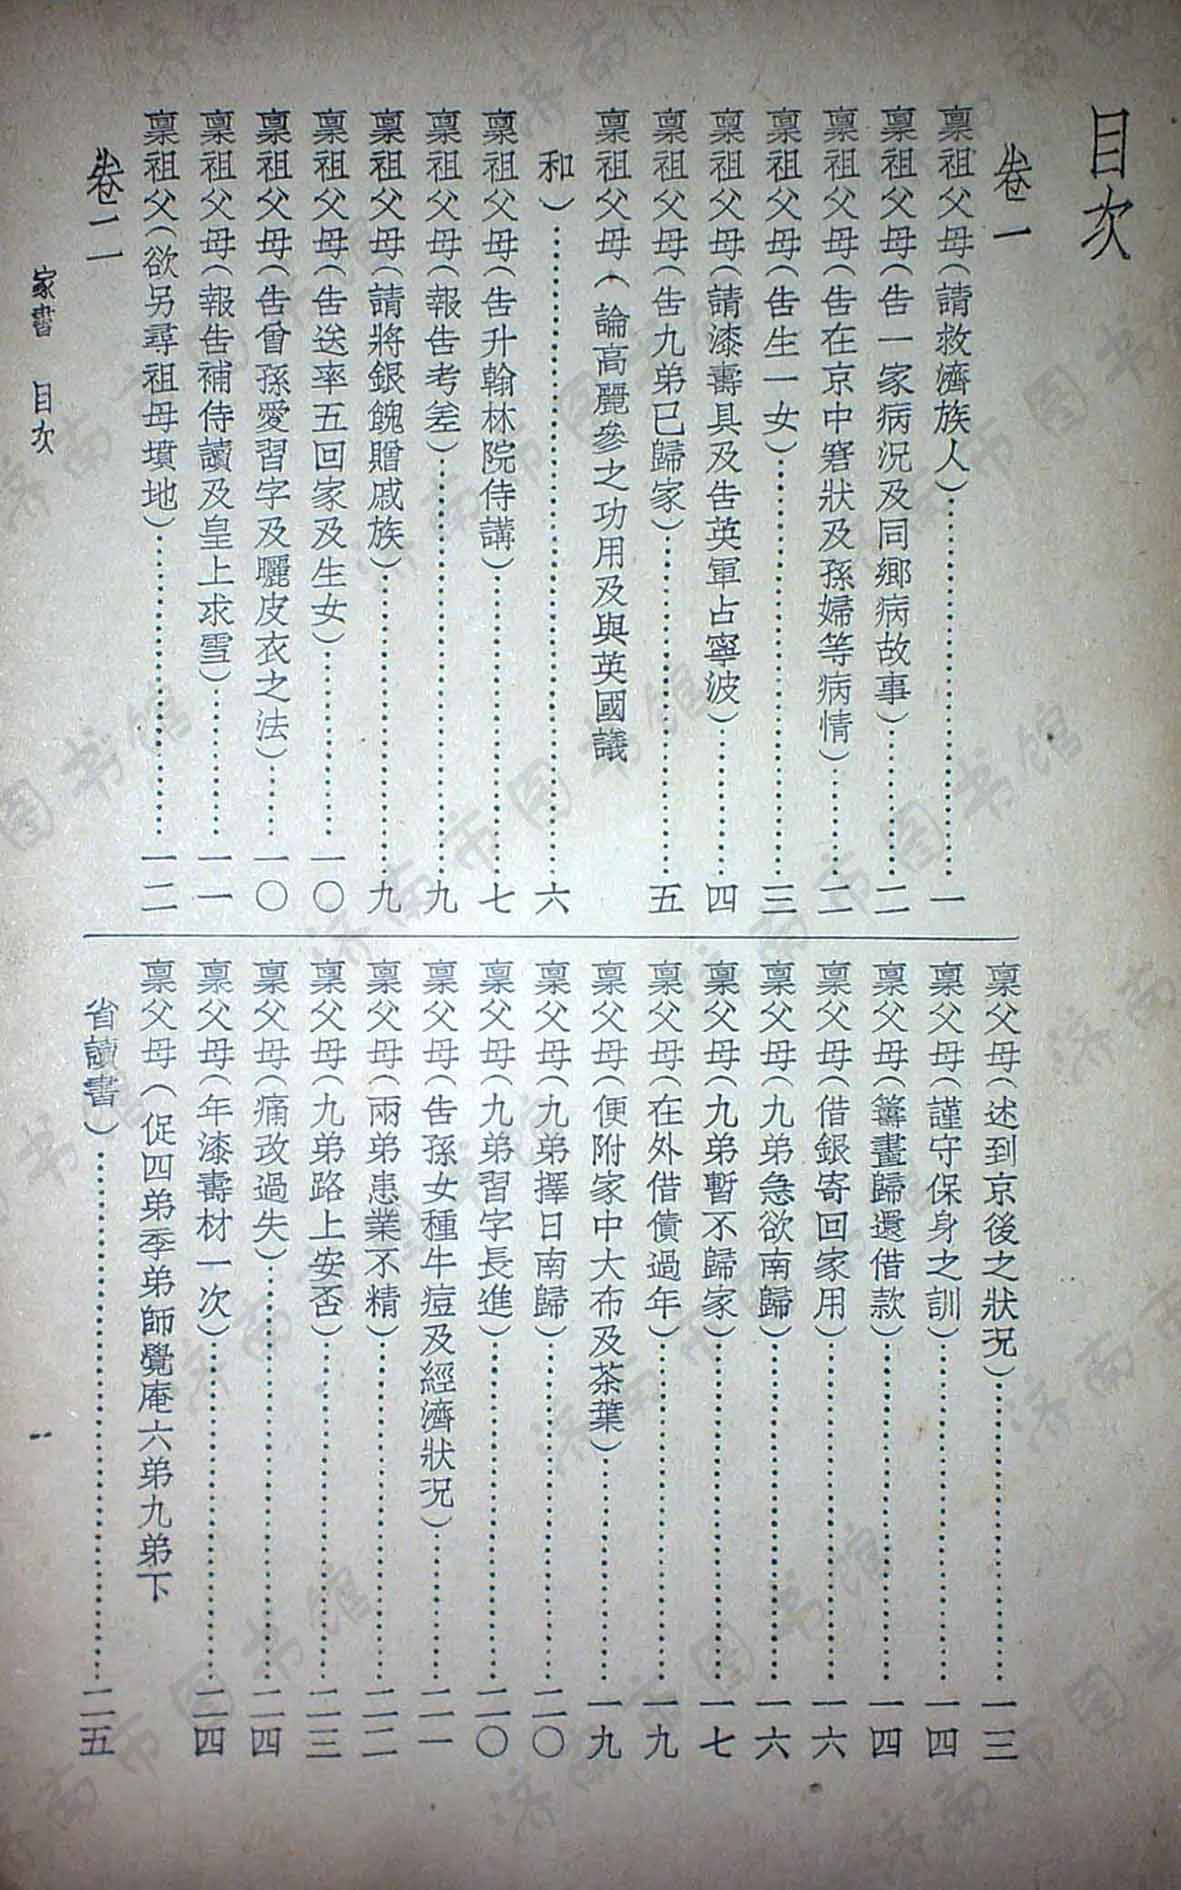 目次
卷一
稟祖父母(請救濟族人)……一
稟祖父母(告一家病況及同鄉病故事)……二
稟祖父母(告在京中窘狀及孫婦等病情)……二
稟祖父母(告生一女)……三
稟祖父母(請漆壽具及告英軍占寧波)……四
稟祖父母(告九弟已歸家)……五
稟祖父母(論高麗參之功用及與英國議
和)……六
稟祖父母(告升翰林院侍講)……七
稟祖父母(報告考差)……九
稟祖父母(請將銀餽贈戚族)……九
稟祖父母(告送率五回家及生女)……一〇
稟祖父母(告曾孫愛習字及曬皮衣之法)……一〇
稟祖父母(報告補侍讀及皇上求雪)……一一
稟祖父(欲另尋祖母墳地)……一二
卷二
稟父母(述到京後之狀況)……一三
稟父母(謹守保身之訓)……一四
稟父母(籌畫歸還借款)……一四
稟父母(借銀寄回家用)……一六
稟父母(九弟急欲南歸)……一六
稟父母(九弟暫不歸家)……一七
稟父母(在外借債過年)……一九
稟父母(便附家中大布及茶葉)……一九
稟父母(九弟擇日南歸)……二〇
稟父母(九弟習字長進)……二〇
稟父母(告孫女種牛痘及經濟狀況)……二一
稟父母(兩弟患業不精)……二二
稟父母(九弟路上安否)……二三
稟父母(痛改過失)……二四
稟父母(年漆壽材一次)……二四
稟父母(促四弟季弟師覺庵六弟九弟下
省讀書)……二五
家書 目次
济南市图书馆